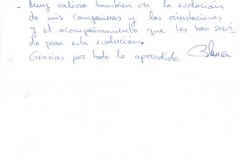 - Muy valioso también ver la evolución
de mis compañeras y las orientaciones
y el acompañamiento que les han servi
do para esta evolución.
Gracias por todo lo aprendido.
Blanca